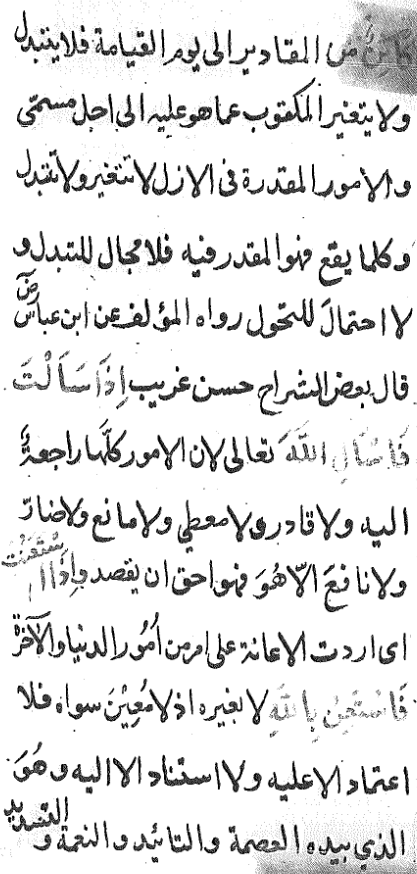 كائن من المقادير الى يوم القيامة فلا يتبدل
ولا يتغير المكتوب عما هو عليه الى اجل مسمّى
والامور المقدرة فى الازل لا تتغير ولا تتبدل
وكلما يقع فهو المقدر فيه فلا مجال للتبدل و
لا احتمالَ للتحول رواه المؤلف عن ابن عباس رض
قال بعض الشراح حسن غريب اِذَا سَاَلْتَ
فَاسْاَلِ اللّٰهَ تعالى لان الامور كلّها راجعةٌ
اليه ولا قادر ولا معطي ولا مانع ولا ضارّ
ولا نافعَ الّا هُوَ فهو احق ان يقصد واِذَا اسْتَعَنْتَ
اى اردت الاعانة على امر من اُمُور الدنيا والآخرة
فَاسْتَعِنْ بِاللّٰهِ لا بغيره اذ لا مُعِيْنَ سواه فلا
اعتماد الا عليه ولا استناد الا اليه وهُوَ
الذي بيده العصمة والتائيد والنعمة و التسديد